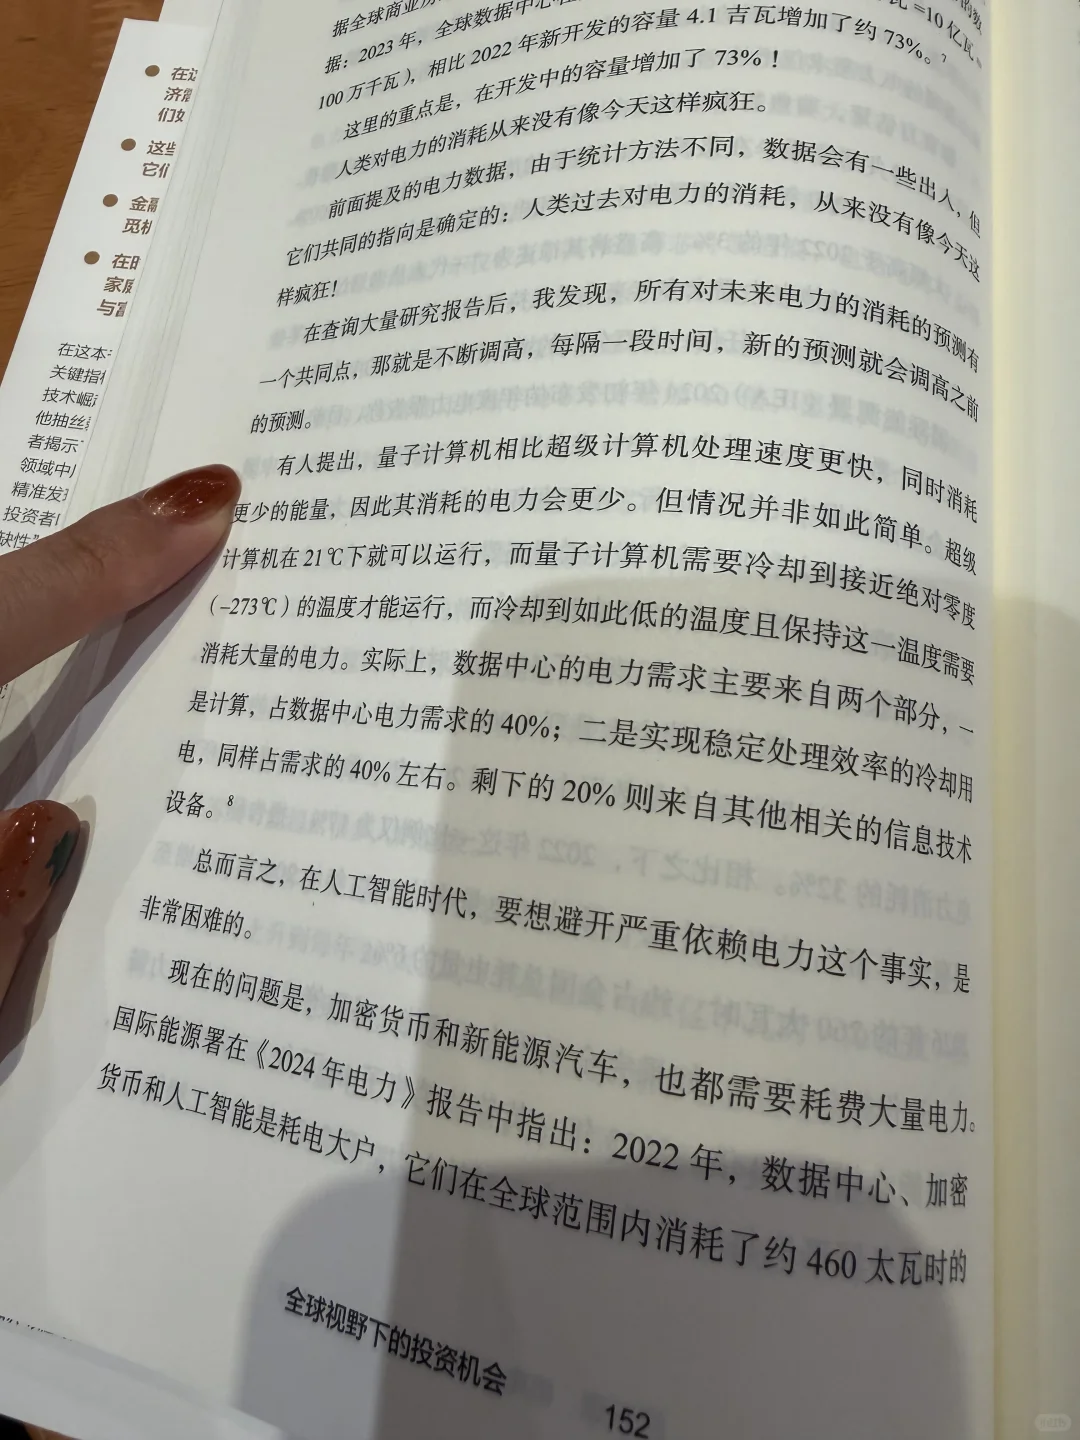 据全球商业房
瓦=10亿瓦=
据：2023年，全球数据中心在
100万千瓦），相比2022年新开发的容量4.1吉瓦增加了约73%。7
这里的重点是，在开发中的容量增加了73%！
人类对电力的消耗从来没有像今天这样疯狂。
前面提及的电力数据，由于统计方法不同，数据会有一些出入，但
它们共同的指向是确定的：人类过去对电力的消耗，从来没有像今天这
样疯狂！
在查询大量研究报告后，我发现，所有对未来电力的消耗的预测有
一个共同点，那就是不断调高，每隔一段时间，新的预测就会调高之前
的预测。
有人提出，量子计算机相比超级计算机处理速度更快，同时消耗
更少的能量，因此其消耗的电力会更少。但情况并非如此简单。超级
计算机在21℃下就可以运行，而量子计算机需要冷却到接近绝对零度
（–273℃）的温度才能运行，而冷却到如此低的温度且保持这一温度需要
消耗大量的电力。实际上，数据中心的电力需求主要来自两个部分，一
是计算，占数据中心电力需求的40%；二是实现稳定处理效率的冷却用
电，同样占需求的40%左右。剩下的20%则来自其他相关的信息技术
设备。8
总而言之，在人工智能时代，要想避开严重依赖电力这个事实，是
非常困难的。
现在的问题是，加密货币和新能源汽车，也都需要耗费大量电力。
国际能源署在《2024年电力》报告中指出：2022年，数据中心、加密
货币和人工智能是耗电大户，它们在全球范围内消耗了约460太瓦时的
全球视野下的投资机会
152
在这
济
们如
这些
它们
金融
觅机
在
家庭
与富
在这本
关键指
技术崛
他抽丝
者揭示
领域中
精准发
投资者
缺性”